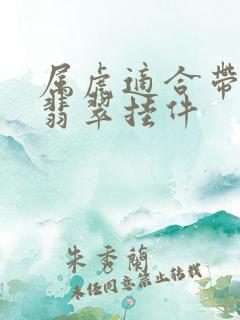 属虎適合帶
翡翠挂件
朱秀蘭
未经同意禁止转载